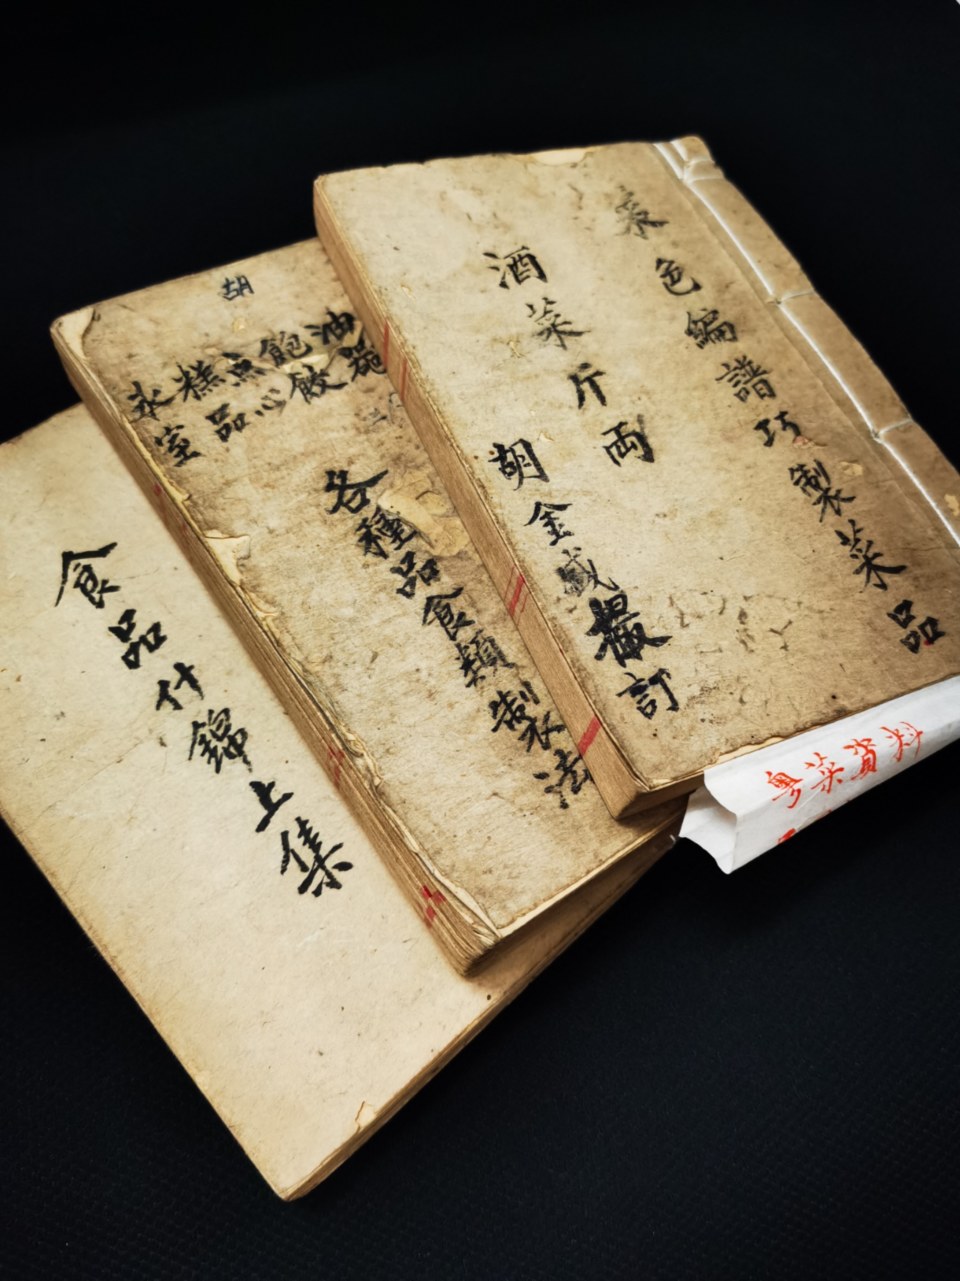 菜色編譜巧製菜品
酒菜斤両
胡金誠撮訂
粵菜資料
胡
油
飽餃
点心
糕品
氷室
各種品食類製法
食品什錦上集